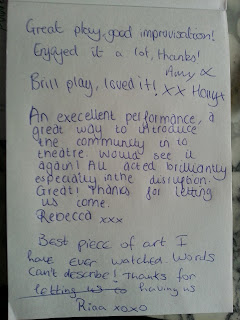 Great play, good improvisation!
Enjoyed it a lot, thanks!
Amy x
Brill play, loved it! xx Holly x
An execellent performance, a
great way to introduce
the community in to
theatre. Would see it
again! All acted brilliantly
especially in the discription.
Great! Thanks for letting
us come.
Rebecca xxx
Best piece of art I
have ever watched words
can't describe! Thanks for
letting us to having us
Rina xoxo